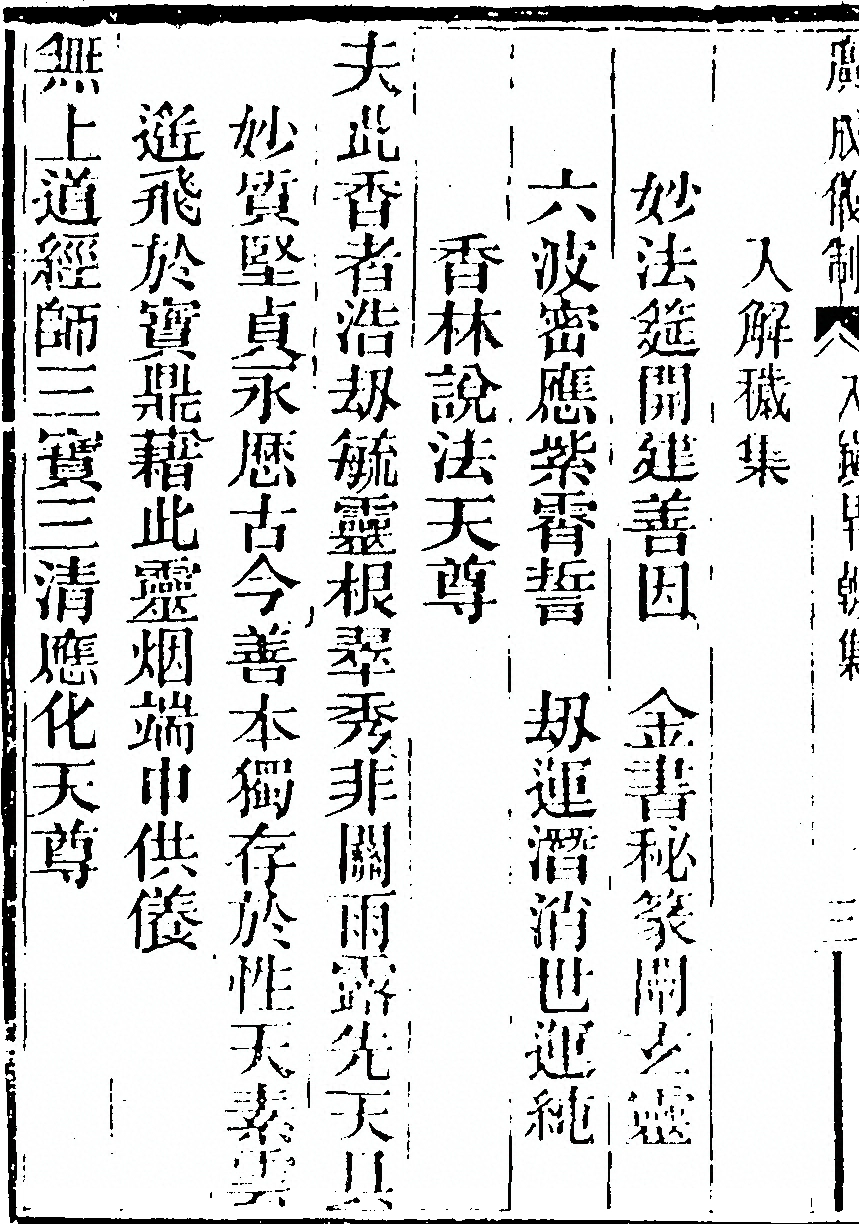 廣成儀制 入 早朝集 三
入解穢集
妙法筵開建善因 金書秘篆闡玄靈
六波密應紫霄誓 刼運潛消世運純
香林說法天尊
夫此香者浩刼毓靈根翠秀非關雨露先天具
妙質堅貞永歷古今善本獨存於性天素雲
遙飛於寶鼎藉此靈烟端申供養
無上道經師三寶三清應化天尊